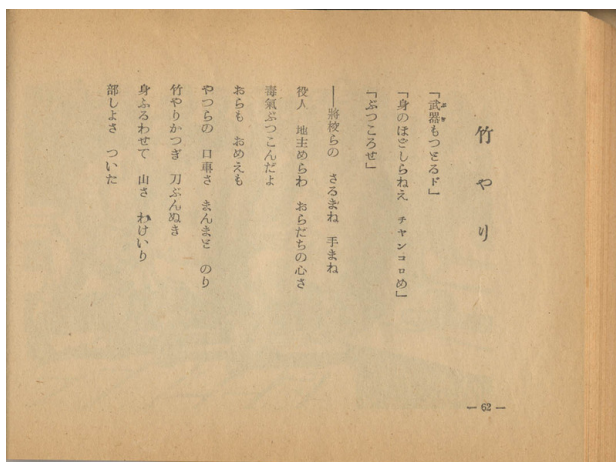 竹やり
「武器もつとるド」
「身のほどしらねえ チャンコロめ」
「ぶつころせ」
――將校らの さるまね 手まね
役人 地主めらわ おらだちの心さ
毒氣ぶつこんだよ
おらも おめえも
やつらの 口車さ まんまと のり
竹やりかつぎ 刀ぶんぬき
身ふるわせて 山さ わけいり
部しよさ ついた
― 62 ―